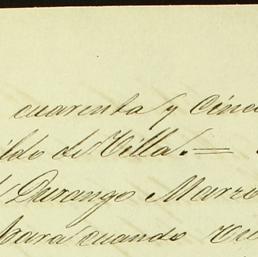 cuarenta y Cinc
ildo de Villa. =
Durango Marzo
para cuando